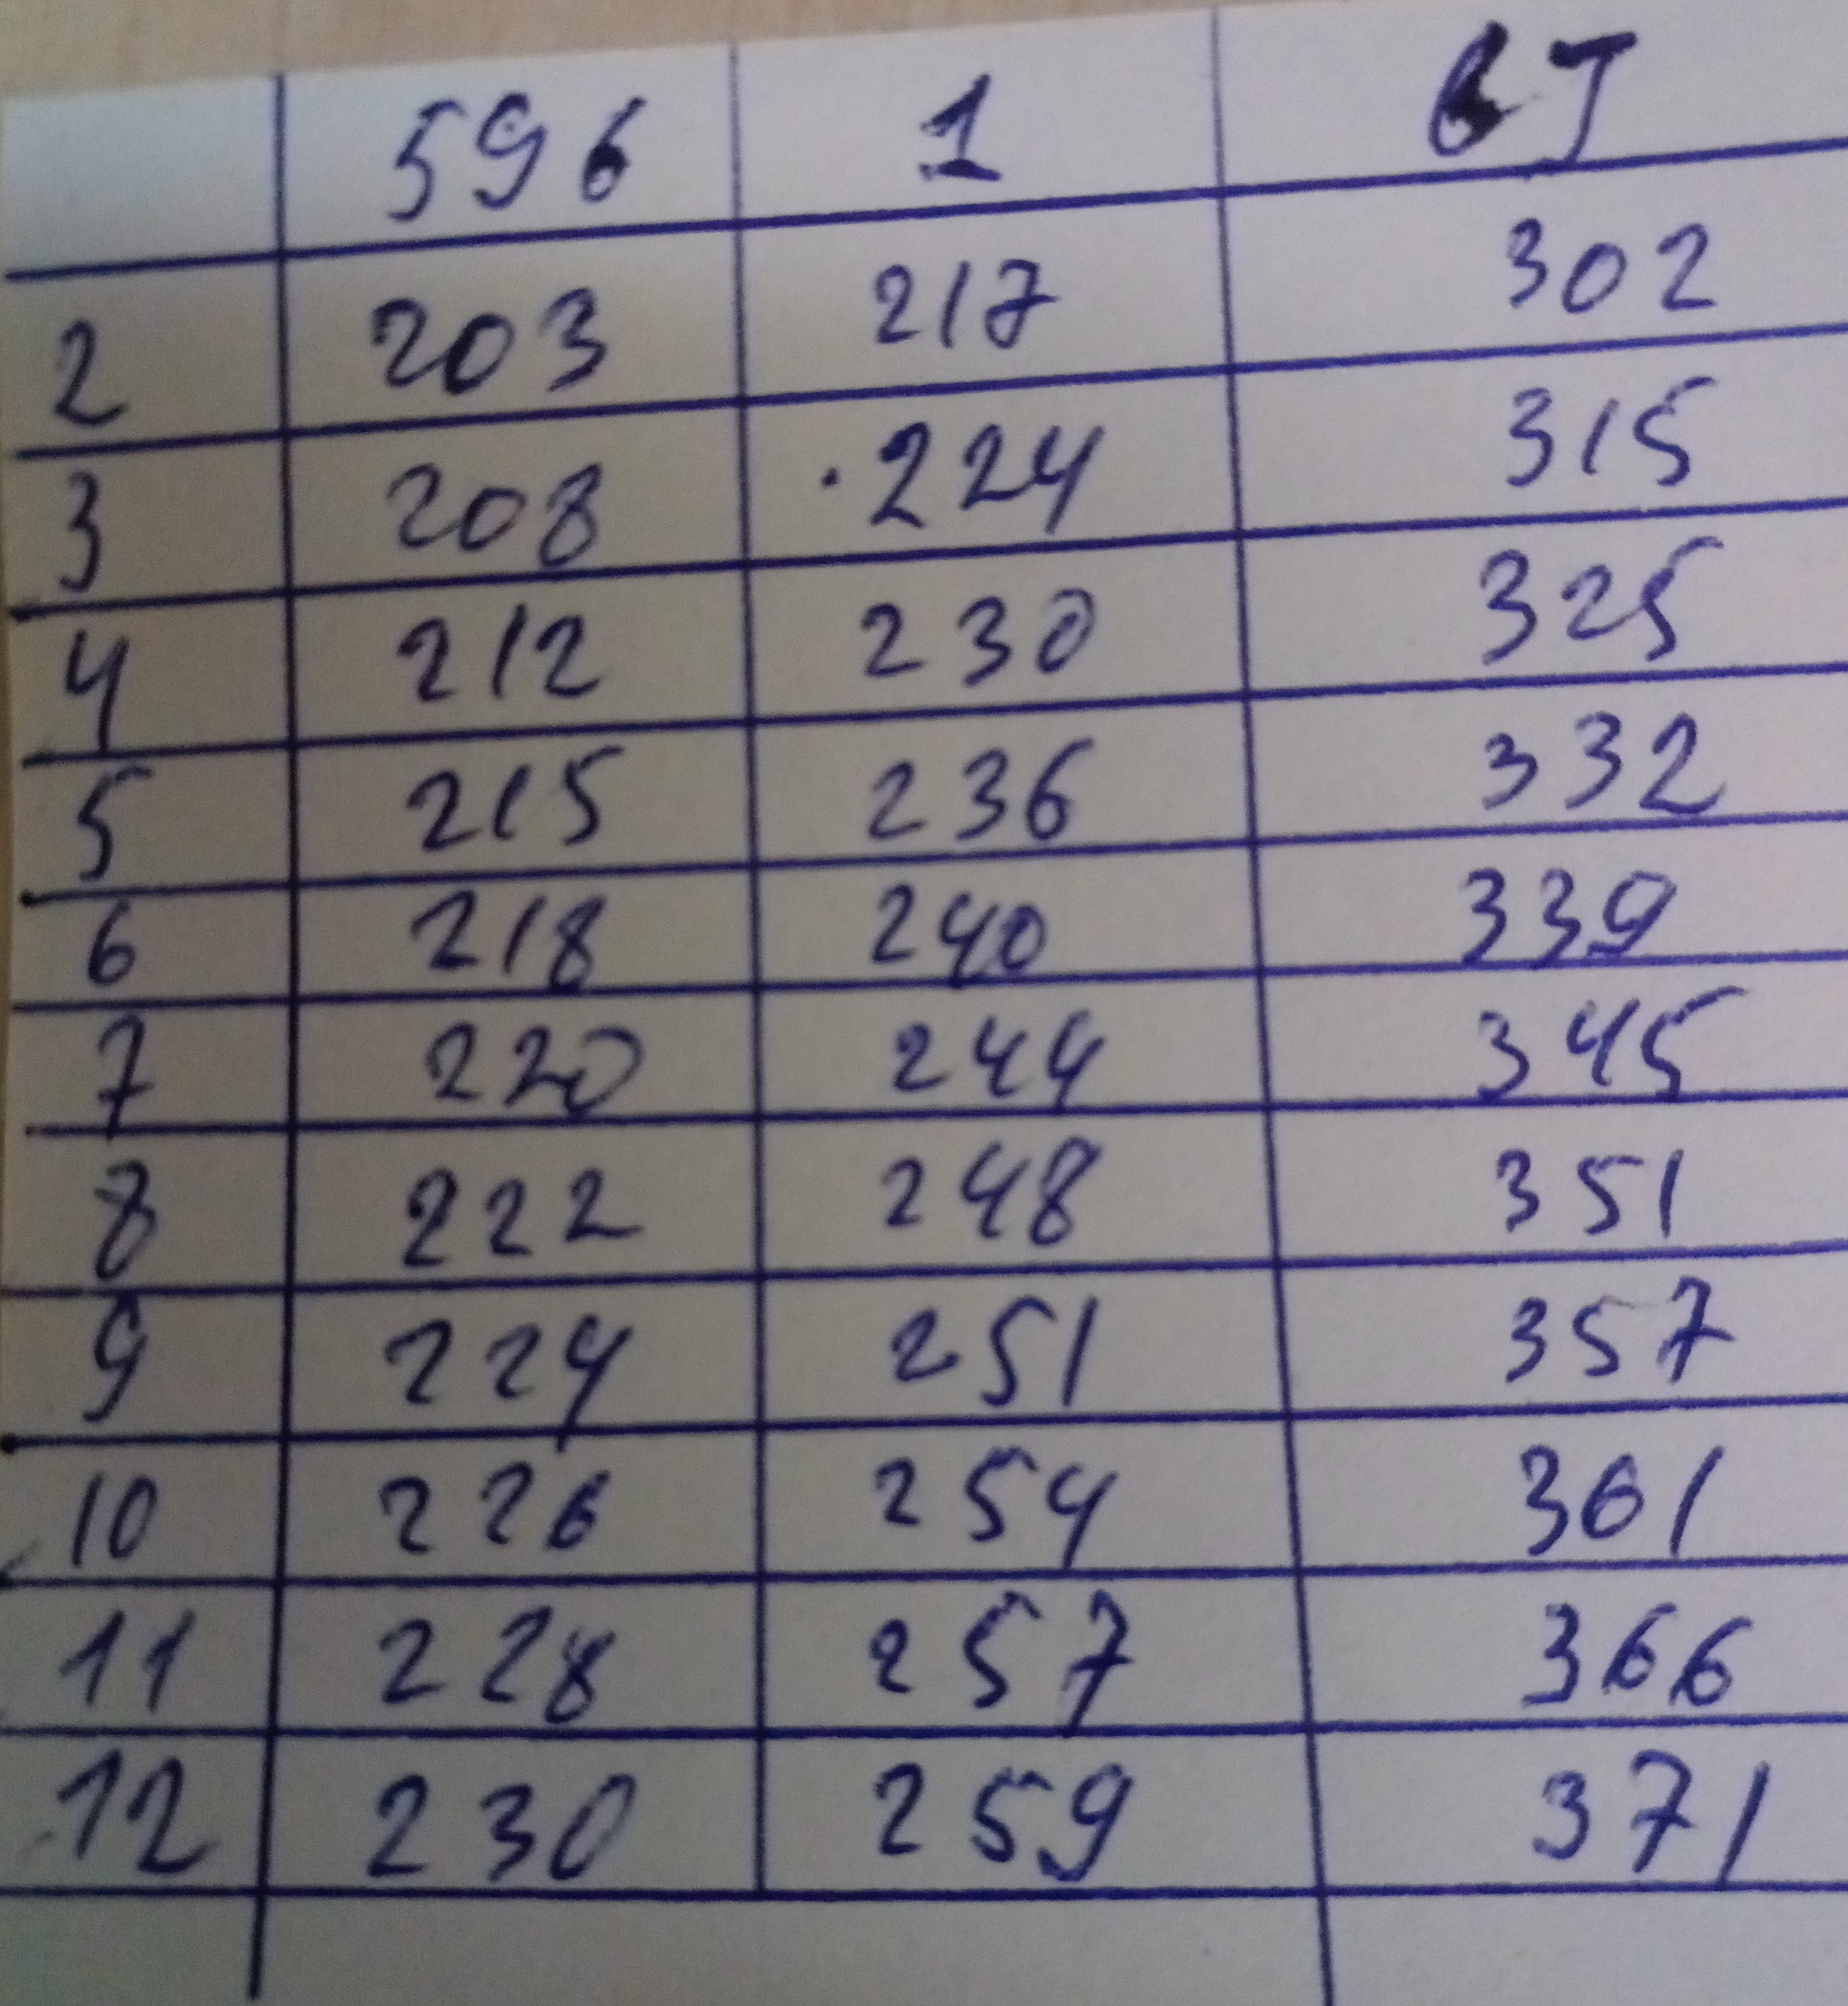 596 1 6J
2 203 217 302
3 208 224 315
4 212 230 325
5 215 236 332
6 218 240 339
7 220 244 345
8 222 248 351
9 224 251 357
10 226 254 361
11 228 257 366
12 230 259 371